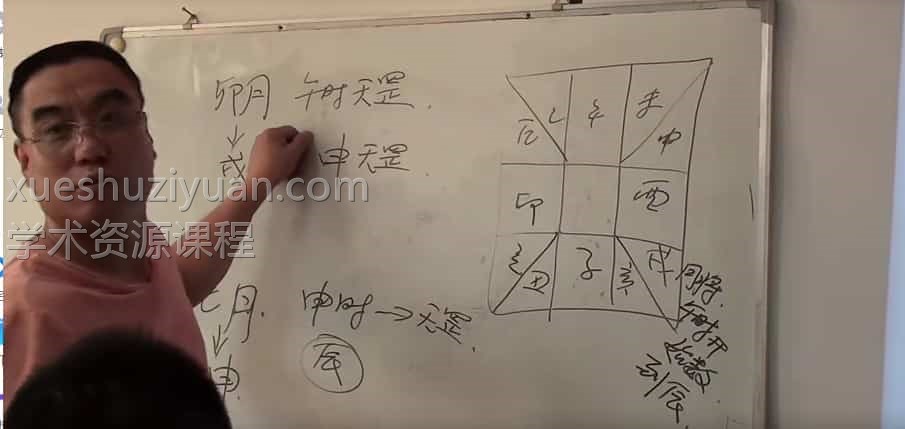 卯月 午时天罡.
戌 申天罡.
xueshuziyuan.com
学术资源课程
七月. 申时→天罡.
申 辰
辰 巳 午 未 申
卯 酉
寅 丑 子 亥 戌
月将.
午时开
数
到辰